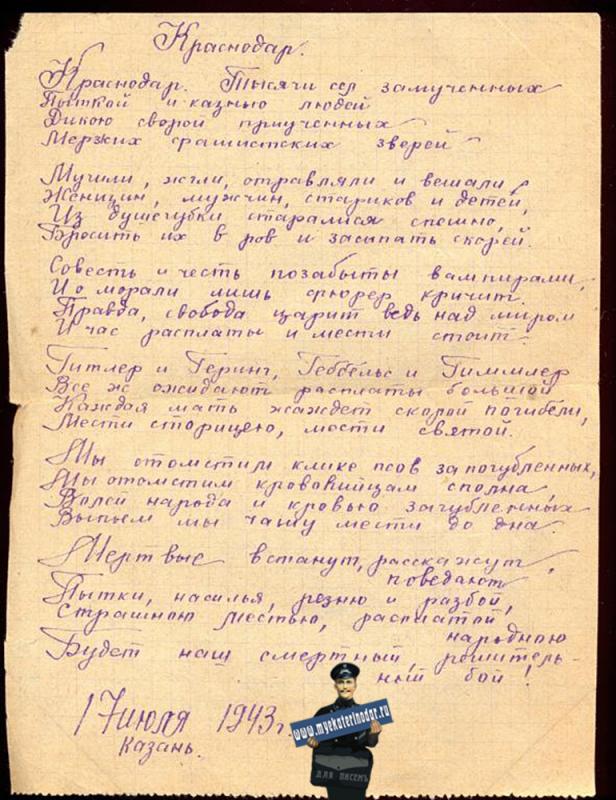 Краснодар.
Краснодар. Тысячи сел замученных
Пыткой и казнью людей
Дикою сворой приученных
Мерзких фашистских зверей
Мучили, жгли, отравляли и вешали
Женщин, мужчин, стариков и детей,
Из душегубки старалися спешно,
Бросить их в ров и засыпать скорей.
Совесть и честь позабыты вампирами,
И о морали лишь фюрер кричит.
Правда, свобода царит ведь над миром
И час расплаты и мести стоит.
Гитлер и Геринг, Геббельс и Гиммлер
Все ж ожидают расплаты большой
Каждая мать жаждет скорой погибели,
Мести сторицею, мести святой.
Мы отомстим клике псов за погубленных,
Мы отомстим кровопийцам сполна,
Волей народа и кровью загубленных
Выпьем мы чашу мести до дна.
Мертвые встанут, расскажут,
поведают
Пытки, насилья, резню и разбой,
Страшною местью, расплатой
народною
Будет наш смертный, решитель-
ный бой!
17 июля 1943 г.
Казань.
www.myekaterinodar.ru
ДЛЯ ПИСЕМЪ